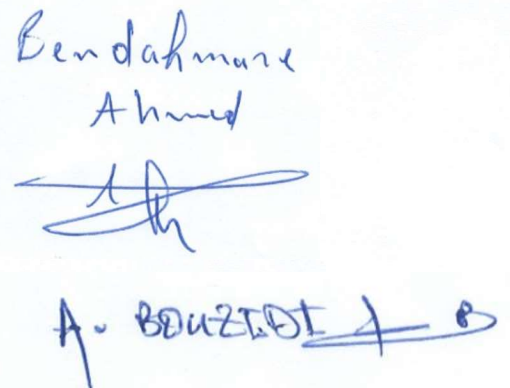 Bendahmane
Ahmed
A. BOUZIDI